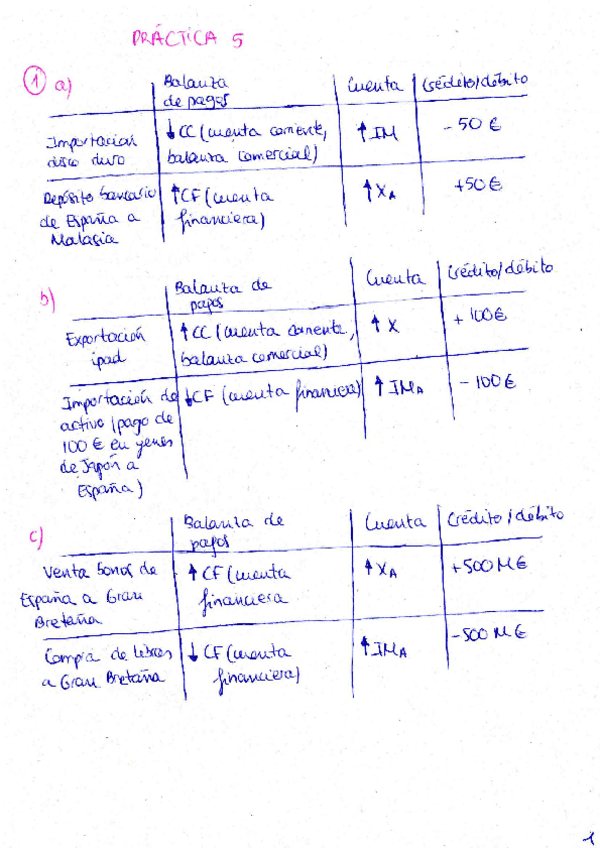 PRÁCTICA 5
① a)
Balanza
de pagos
Cuenta
Crédito/débito
Importación
disco duro
↓CC (cuenta corriente,
balanza comercial)
↑IM
- 50 €
Depósito bancario
de España a
Malasia
↑CF (cuenta
financiera)
↑XA
+50 €
b)
Balanza de
pagos
Cuenta
Crédito/débito
Exportación
ipad
↑CC (cuenta corriente,
balanza comercial)
↑X
+ 100€
Importación de
activo (pago de
100 € en yenes
de Japón a
España)
↓CF (cuenta financiera)
↑IMA
- 100€
c)
Balanza de
pagos
Cuenta
Crédito/débito
Venta bonos de
España a Gran
Bretaña
↑CF (cuenta
financiera
↑XA
+500 M€
Compra de libras
a Gran Bretaña
↓CF (cuenta
financiera)
↑IMA
-500 M€
1